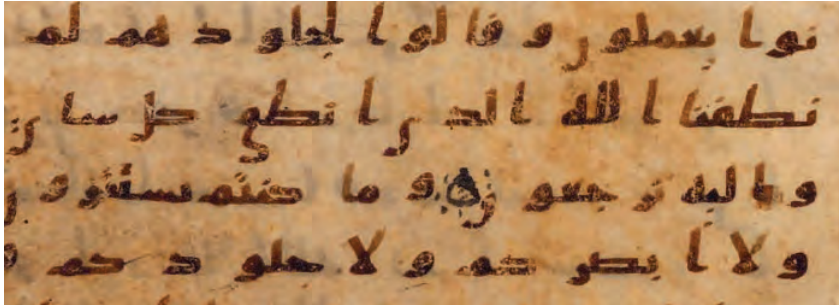 نوا يعملون وقالوا لجلودهم لم
نطقنا الله الذي انطق كل شاي
واليه ترجعون وما كنتم تستترون
ولا ابصركم ولا جلودكم و